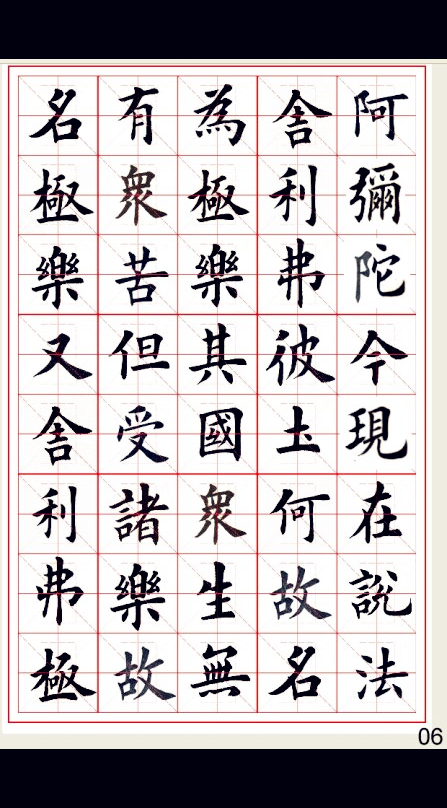 阿彌陀今現在說法
舎利弗彼土何故名
為極樂其國衆生無
有衆苦但受諸樂故
名極樂又舎利弗極
06